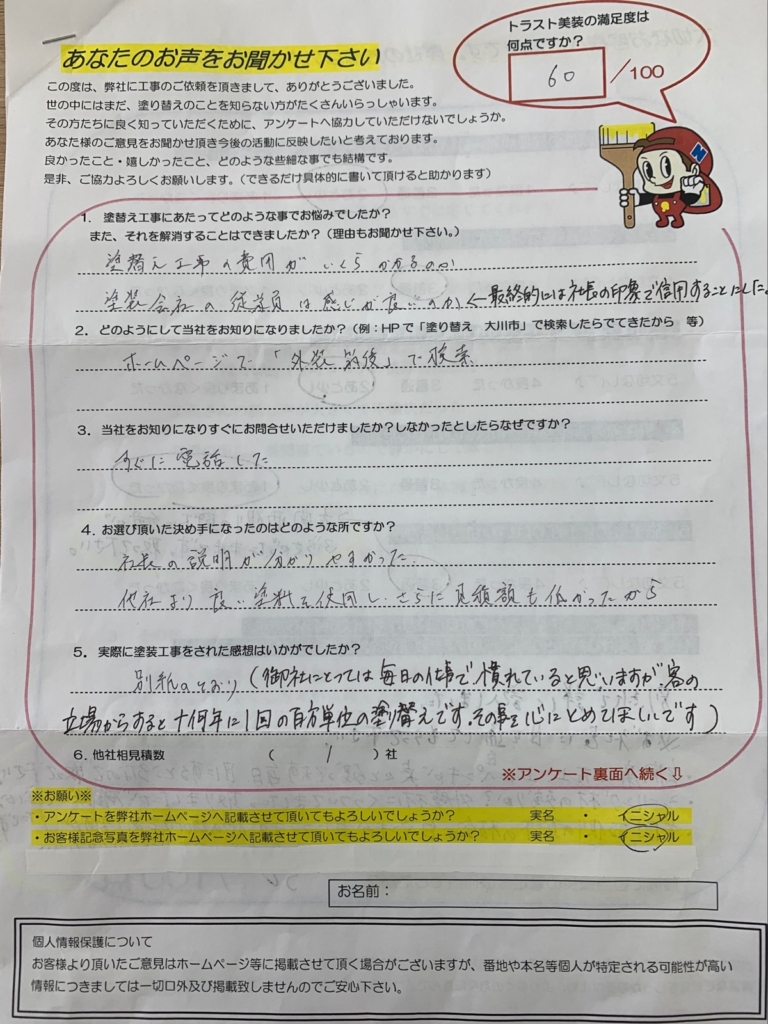 トラスト美装の満足度は
何点ですか？
60 /100
あなたのお声をお聞かせ下さい
この度は、弊社に工事のご依頼を頂きまして、ありがとうございました。
世の中にはまだ、塗り替えのことを知らない方がたくさんいらっしゃいます。
その方たちに良く知っていただくために、アンケートへ協力していただけないでしょうか。
あなた様のご意見をお聞かせ頂き今後の活動に反映したいと考えております。
良かったこと・嬉しかったこと、どのような些細な事でも結構です。
是非、ご協力よろしくお願いします。（できるだけ具体的に書いて頂けると助かります）
N
1. 塗替え工事にあたってどのような事でお悩みでしたか？
また、それを解消することはできましたか？（理由もお聞かせ下さい。）
塗替え工事の費用がいくらかかるのか
塗装会社の従業員は感じが良いのか ← 最終的には社長の印象で信用することにした。
2. どのようにして当社をお知りになりましたか？（例：HPで「塗り替え 大川市」で検索したらでてきたから 等）
ホームページで「外装 筑後」で検索
3. 当社をお知りになりすぐにお問合せいただけましたか？しなかったとしたらなぜですか？
すぐに電話した
4. お選び頂いた決め手になったのはどのような所ですか？
社長の説明が分かりやすかった
他社より良い塗料を使用し、さらに見積額も低かったから
5. 実際に塗装工事をされた感想はいかがでしたか？
別紙のとおり（御社にとっては毎日の仕事で慣れていると思いますが客の
立場からすると十何年に1回の百万単位の塗り替えです。その事を心にとめてほしいです）
6. 他社相見積数 （ 1 ）社
※アンケート裏面へ続く⇩
※お願い※
・アンケートを弊社ホームページへ記載させて頂いてもよろしいでしょうか？ 実名 ・ イニシャル
・お客様記念写真を弊社ホームページへ記載させて頂いてもよろしいでしょうか？ 実名 ・ イニシャル
お名前：
個人情報保護について
お客様より頂いたご意見はホームページ等に掲載させて頂く場合がございますが、番地や本名等個人が特定される可能性が高い
情報につきましては一切口外及び掲載致しませんのでご安心下さい。